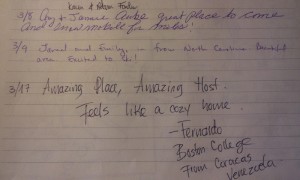 3/8 Guy & Janane great place to come
and snowmobile for
3/9 Jarred and Emily, - from North Carolina Beautiful
area. Excited to be!
3/17 Amazing Place, Amazing Host.
Feels like a cozy home.
- Fernando
Boston College
From Caracas
Venezuela